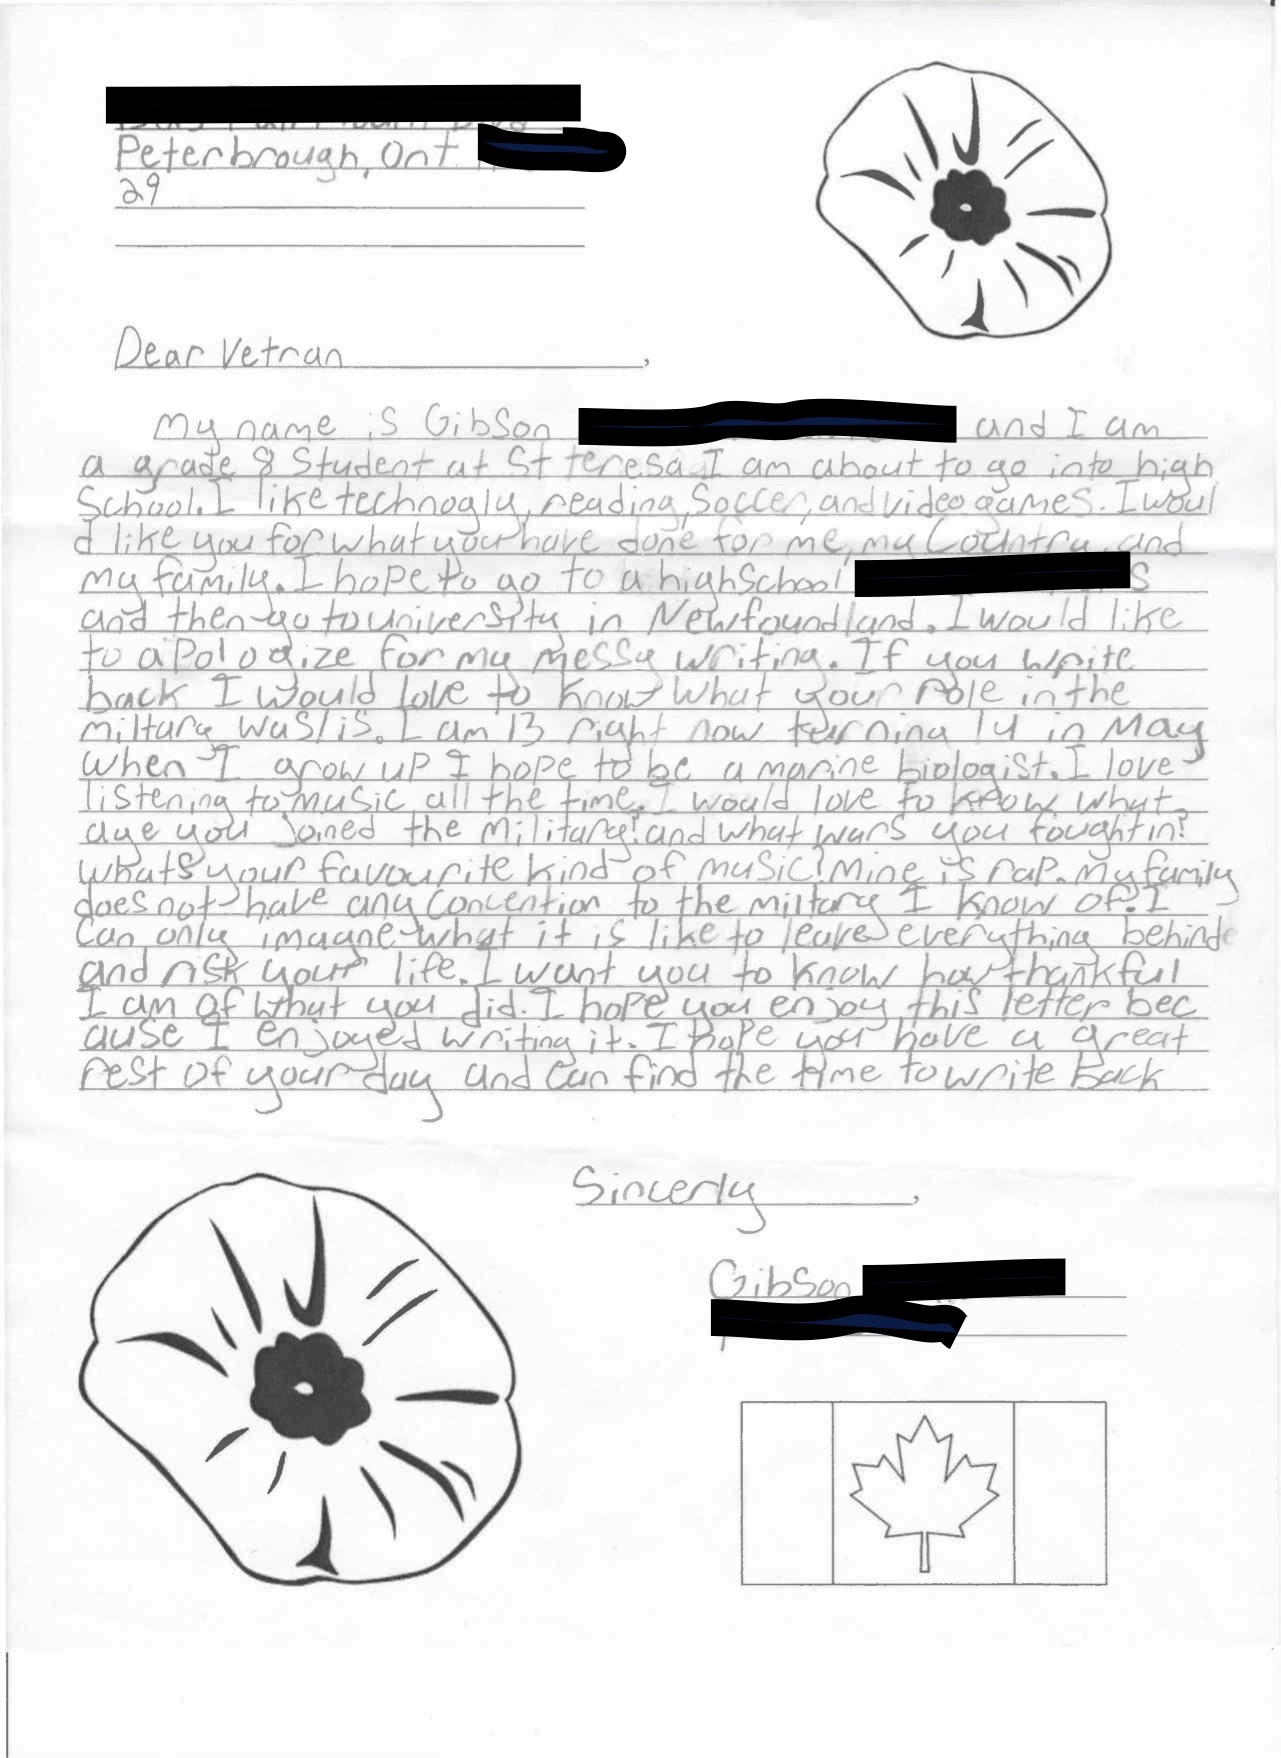 Peterbrough, Ont
29
Dear Vetran,
My name is Gibson and I am
a grade 8 Student at St teresa I am about to go into high
School. I like technogly, reading, Soccer, and video games. I woul
d like you for what you have done for me, my Country, and
my family. I hope to go to a high School s
and then go to university in Newfoundland. I would like
to apologize for my messy writing. If you write
back I would love to know what your role in the
miltary was/is. I am 13 right now turning 14 in May
when I grow up I hope to be a marine biologist. I love
listening to music all the time. I would love to know what
age you joined the military! and what wars you fought in?
whats your favourite kind of music? Mine is rap. My family
does not have any Concention to the miltary I know of. I
Can only imagne what it is like to leave everything behind
and risk your life. I want you to know how thankful
I am of what you did. I hope you enjoy this letter bec
ause I enjoyed writing it. I hope you have a great
rest of your day and can find the time to write back
Sincerly,
Gibson